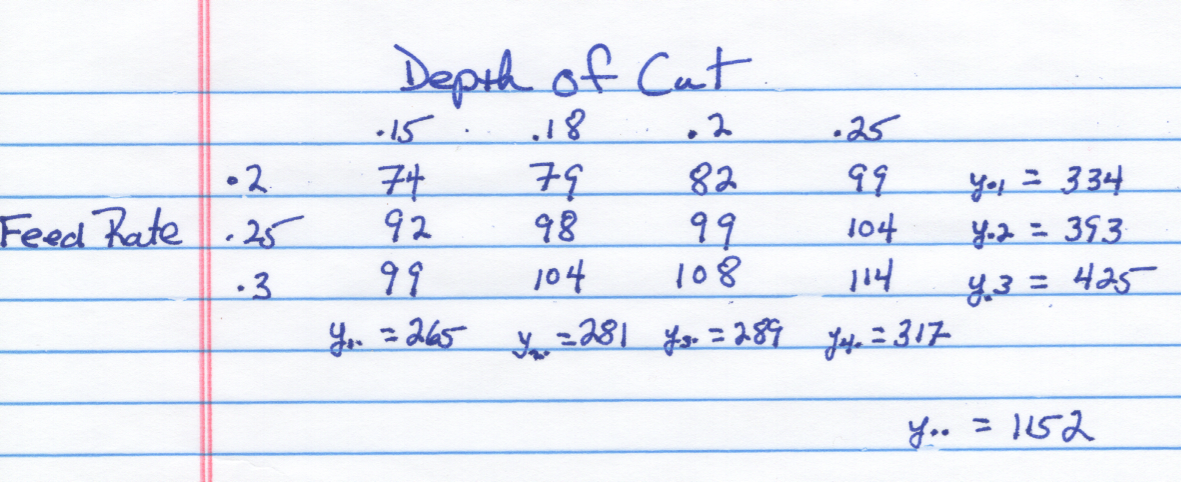 Depth of Cut
.15 .18 .2 .25
.2 74 79 82 99 y.1 = 334
Feed Rate .25 92 98 99 104 y.2 = 393
.3 99 104 108 114 y.3 = 425
y1. = 265 y2. = 281 y3. = 289 y4. = 317
y.. = 1152